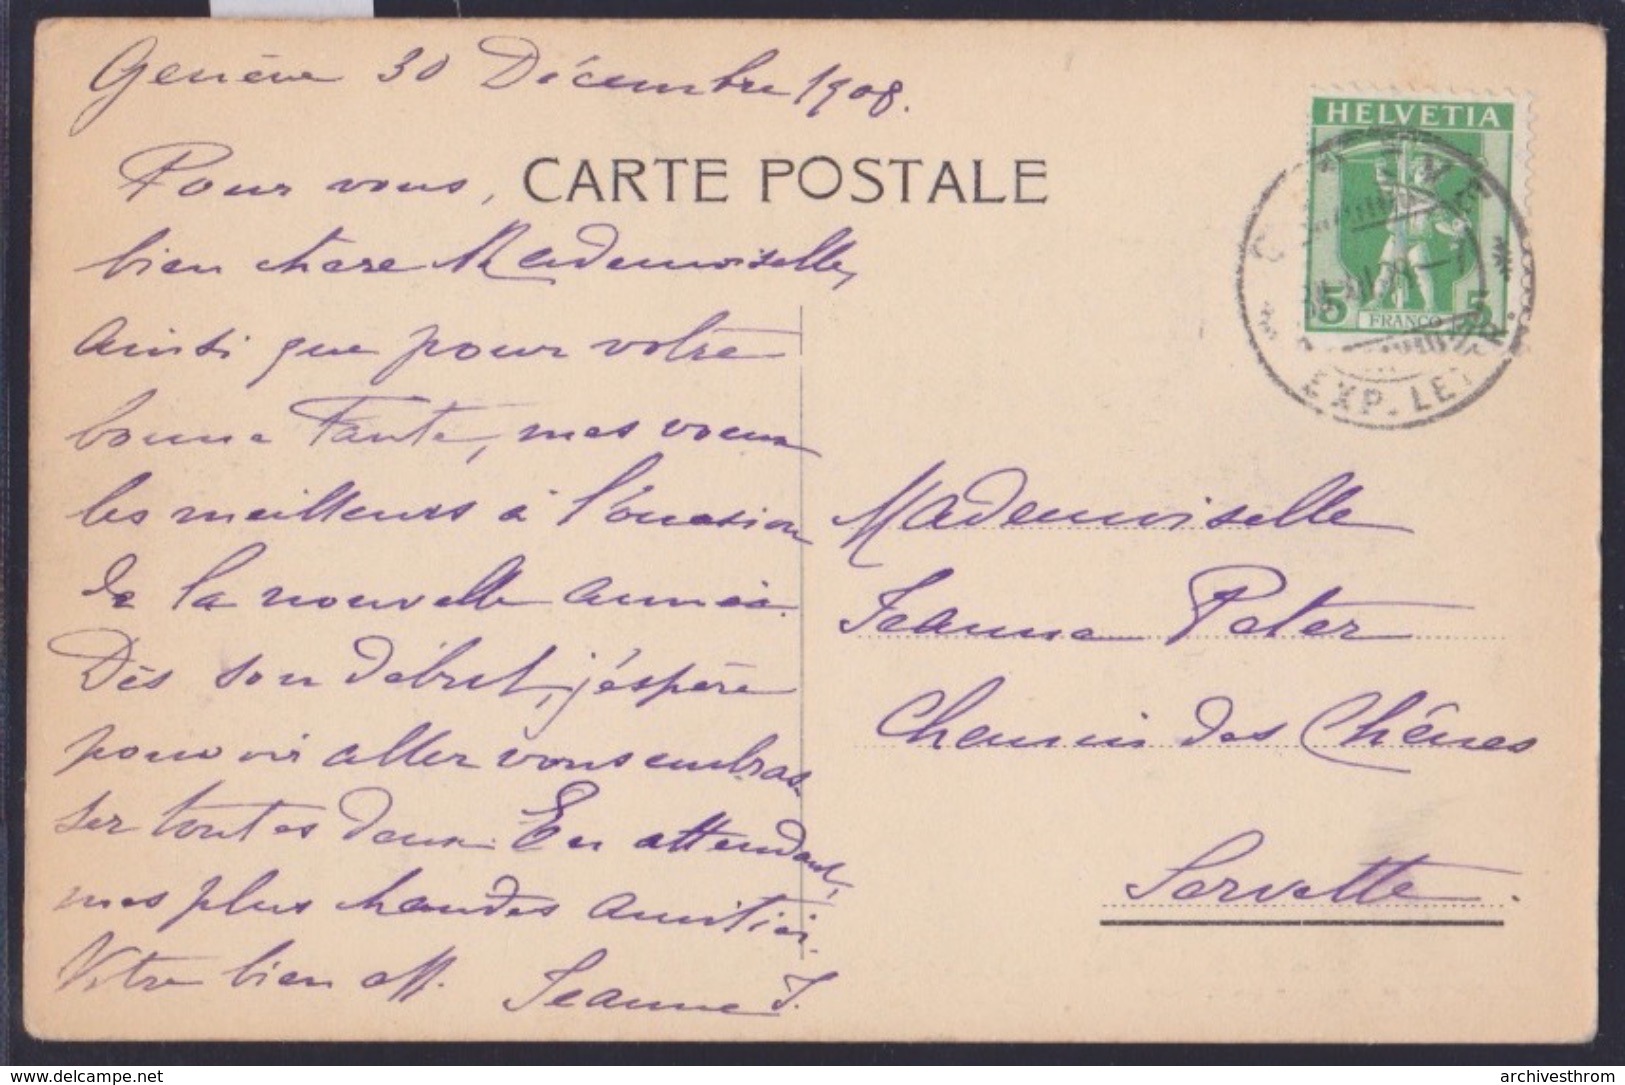 Genève 30 Décembre 1908.
CARTE POSTALE
Pour vous,
bien chère Mademoiselle,
ainsi que pour votre
bonne Tante, mes voeux
les meilleurs à l'occasion
de la nouvelle année.
Dès son début, j'éspère
pouvoir aller vous embras-
ser toutes deux. En attendant,
mes plus chaudes amitiés.
Votre bien aff. Jeanne J.
HELVETIA
5 FRANCO 5
EXP. LET
Mademoiselle
Jeanne Peter
Chemin des Chênes
Servette.
www.delcampe.net
archivesthrom